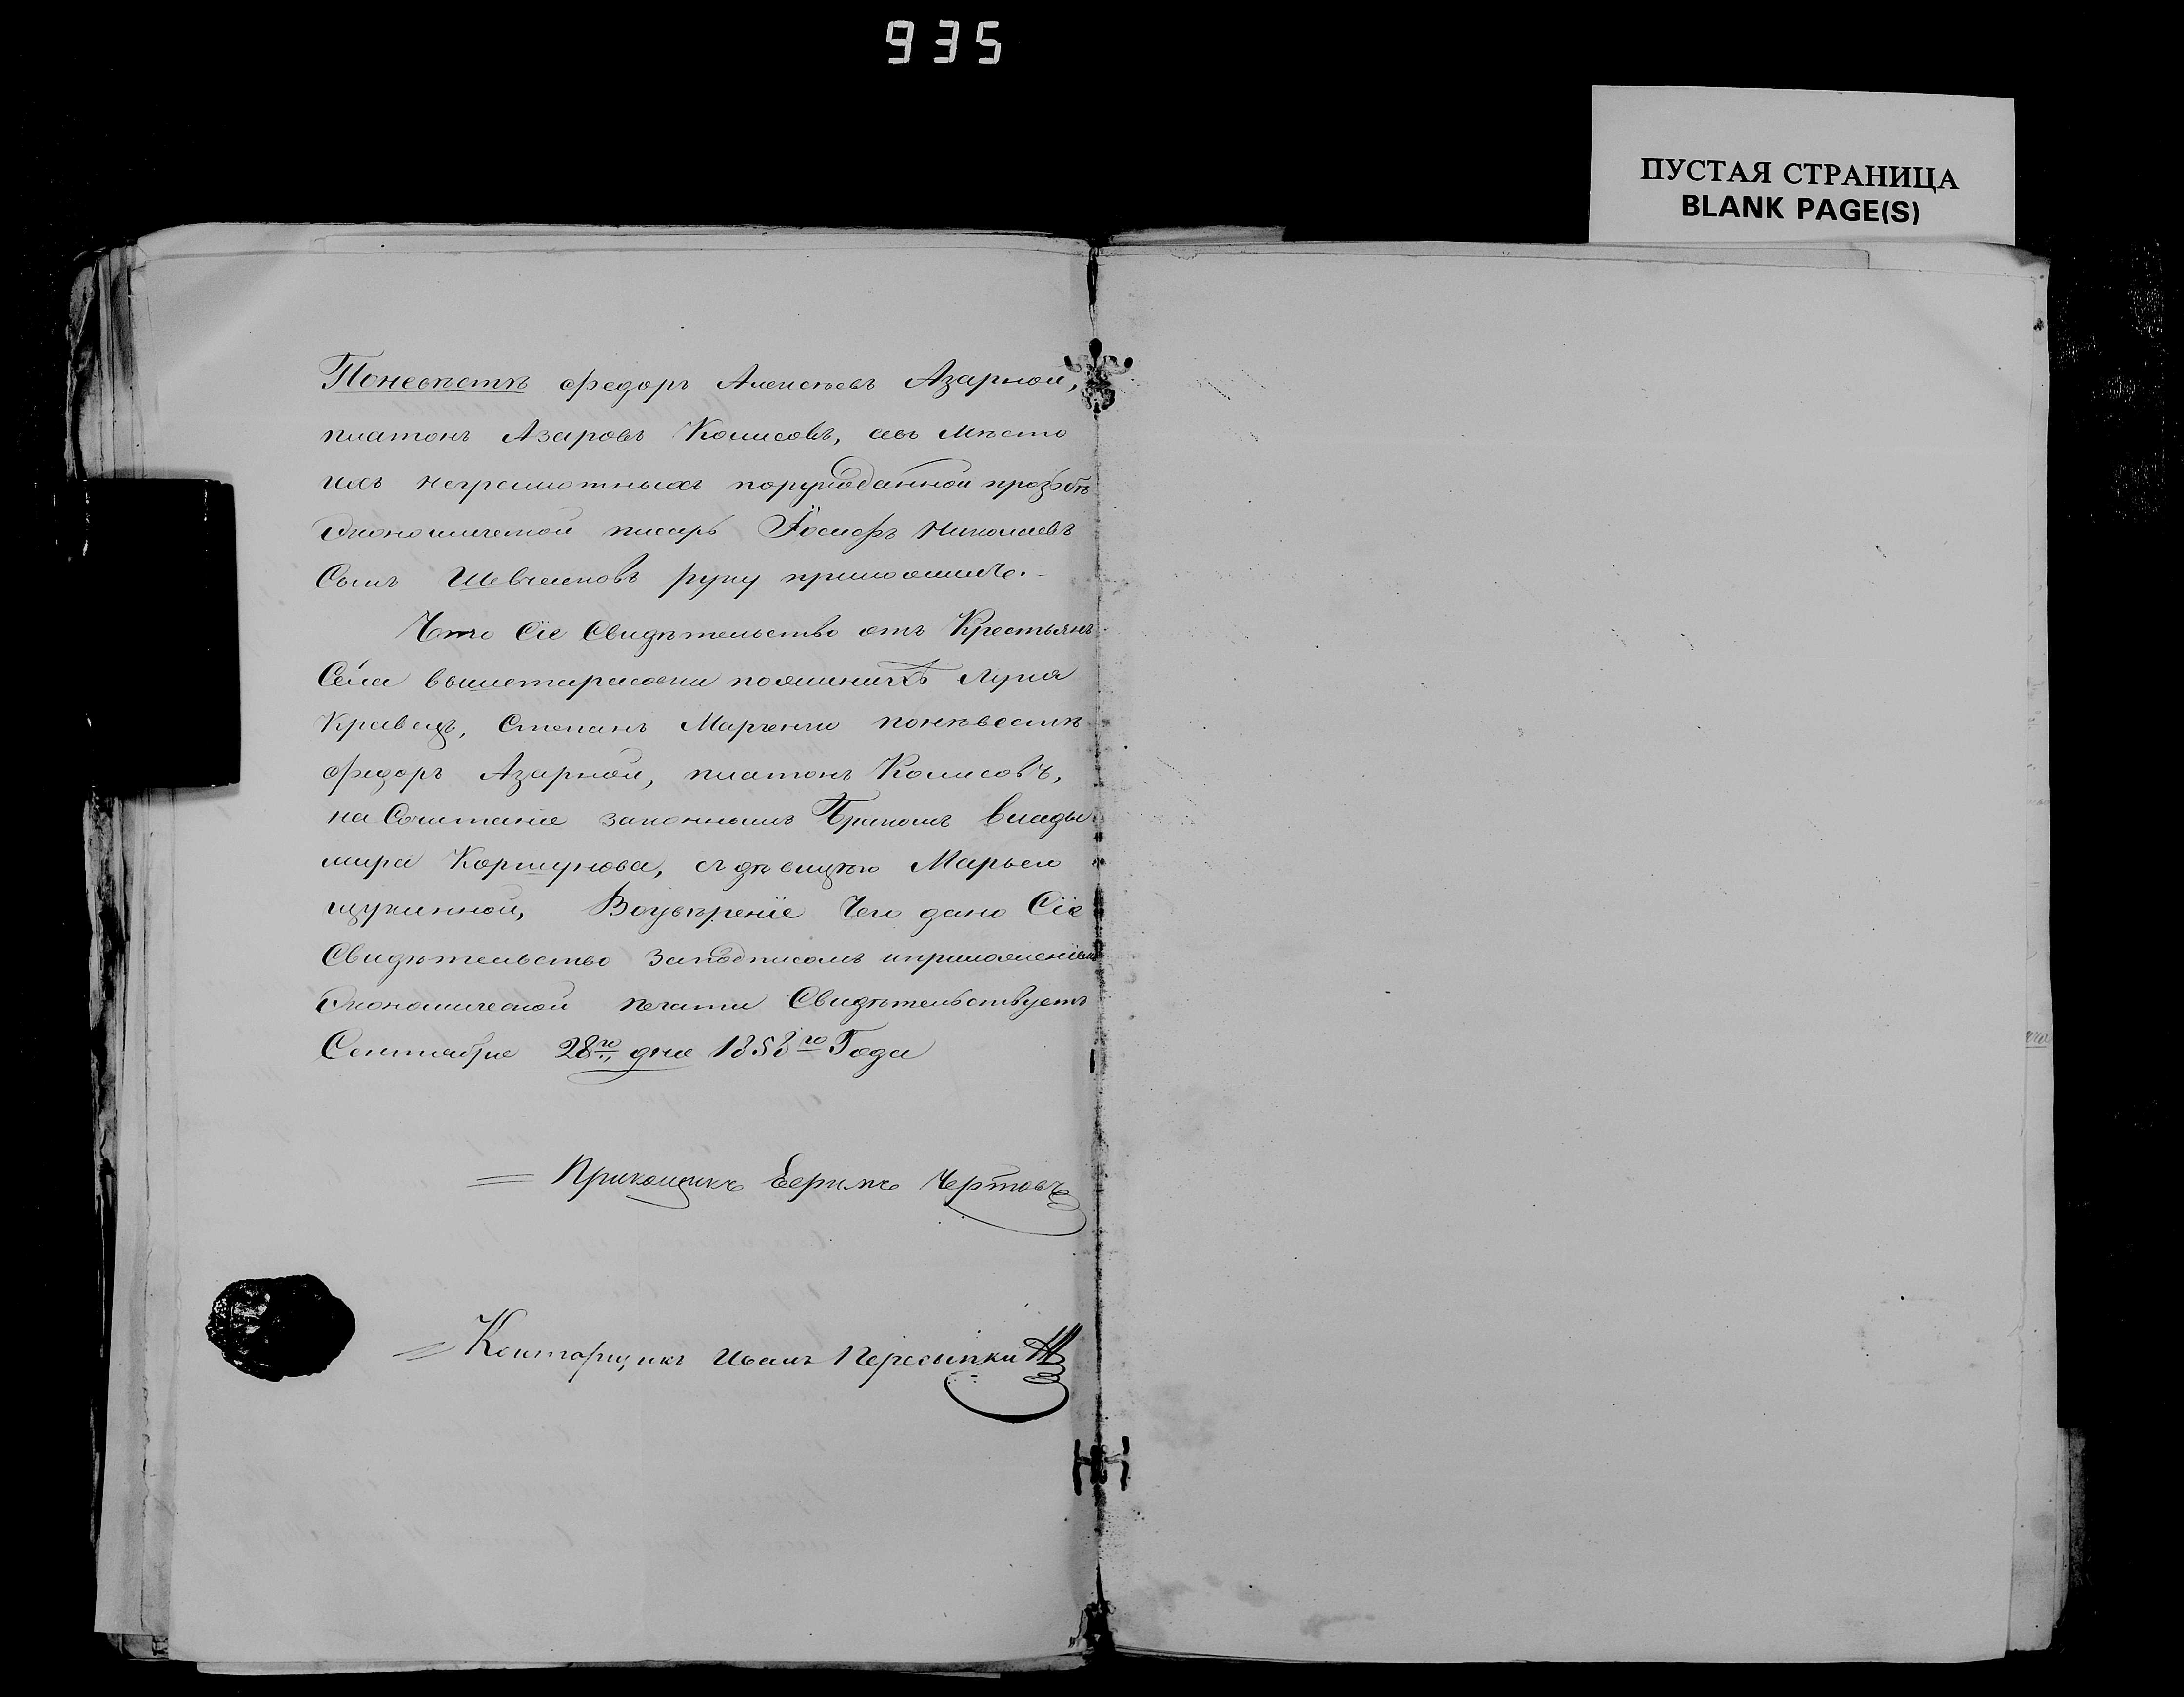 935
ПУСТАЯ СТРАНИЦА
BLANK PAGE(S)
Поневѣстѣ Федоръ Алексѣевъ Азарной,
платонъ Азаровъ Колисовъ, авъ мѣсто
ихъ неграмотныхъ порукоданной прозьбѣ
Экономической писарь Іосифъ Николаевъ
Сынъ Шевченковъ руку приложилъ.
Что Сіе Свидѣтельство отъ Крестьянъ
Села вышетарасовки пожениху Лука
Кравецъ, Степанъ Марченко поневестѣ
Федоръ Азарной, платонъ Колисовъ,
на Сочитаніе законнымъ Бракомъ влады
мира Коршунова, съ дѣвицѣю Марьею
щукинной, Воувѣреніе Чего дано Сіе
Свидѣтельство Заподписомъ иприложеніемъ
Экономической печати Свидѣтельствуетъ
Сентября 28го дня 1858го Года
Прикащикъ Ефимъ Чертовъ
Конторщикъ Иванъ Пересыпки